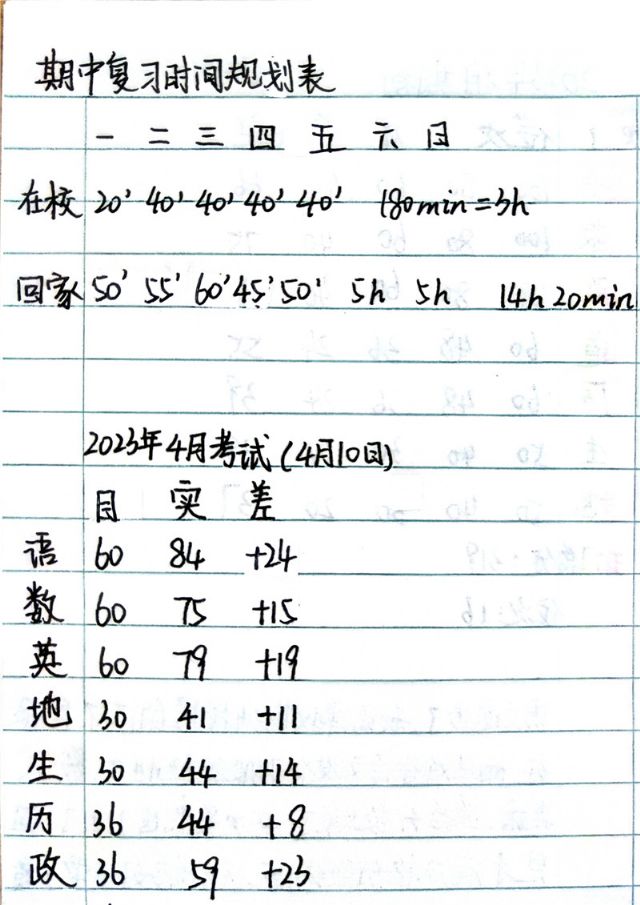 期中复习时间规划表
一 二 三 四 五 六 日
在校 20' 40' 40' 40' 40' 180min=3h
回家 50' 55' 60' 45' 50' 5h 5h 14h 20min
2023年4月考试(4月10日)
目 实 差
语 60 84 +24
数 60 75 +15
英 60 79 +19
地 30 41 +11
生 30 44 +14
历 36 44 +8
政 36 59 +23